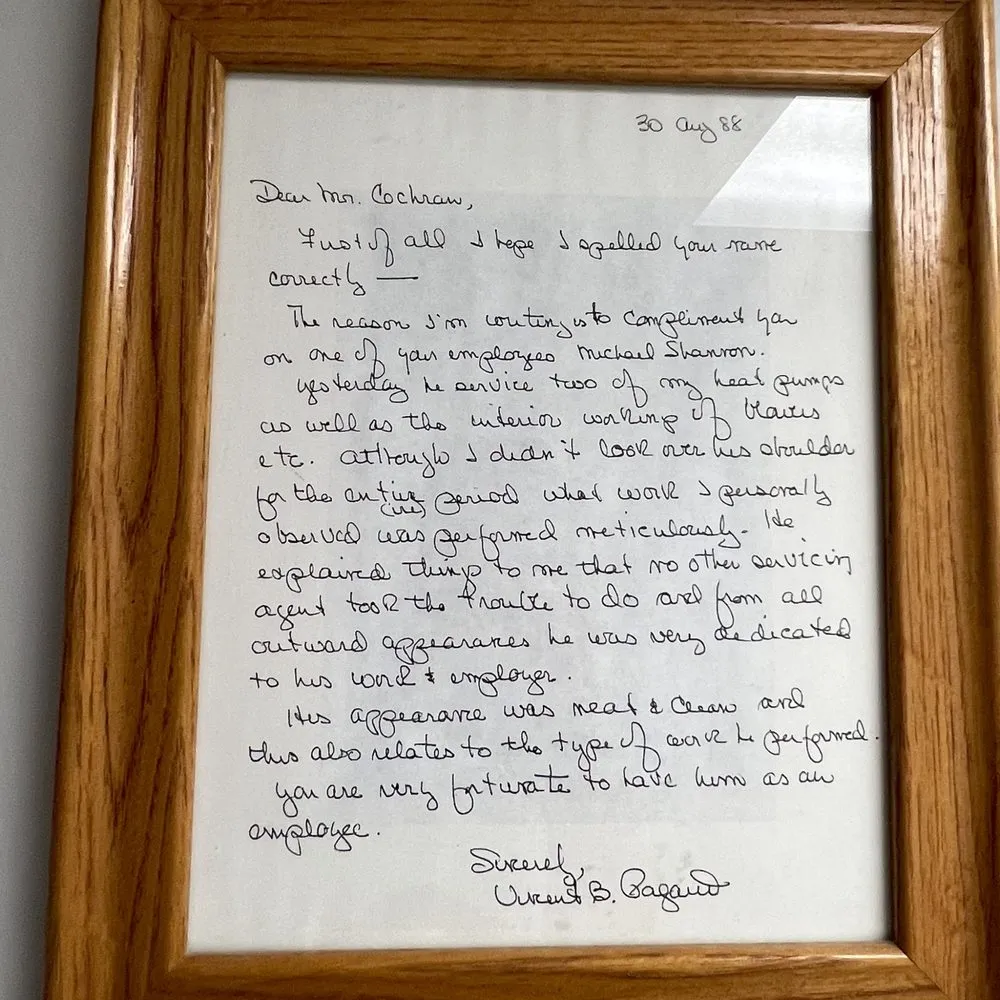 30 Aug 88
Dear Mr. Cochran,
First of all I hope I spelled your name
correctly —
The reason I'm writing is to compliment you
on one of your employees Michael Shannon.
Yesterday he service two of my heat pumps
as well as the interior working of
etc. Although I didn't look over his shoulder
for the entire period what work I personally
observed was performed meticulously. He
explained things to me that no other servicing
agent took the trouble to do and from all
outward appearances he was very dedicated
to his work & employer.
His appearance was neat & clean and
this also relates to the type of work he performed.
You are very fortunate to have him as an
employee.
Sincerely,
Vincent B.